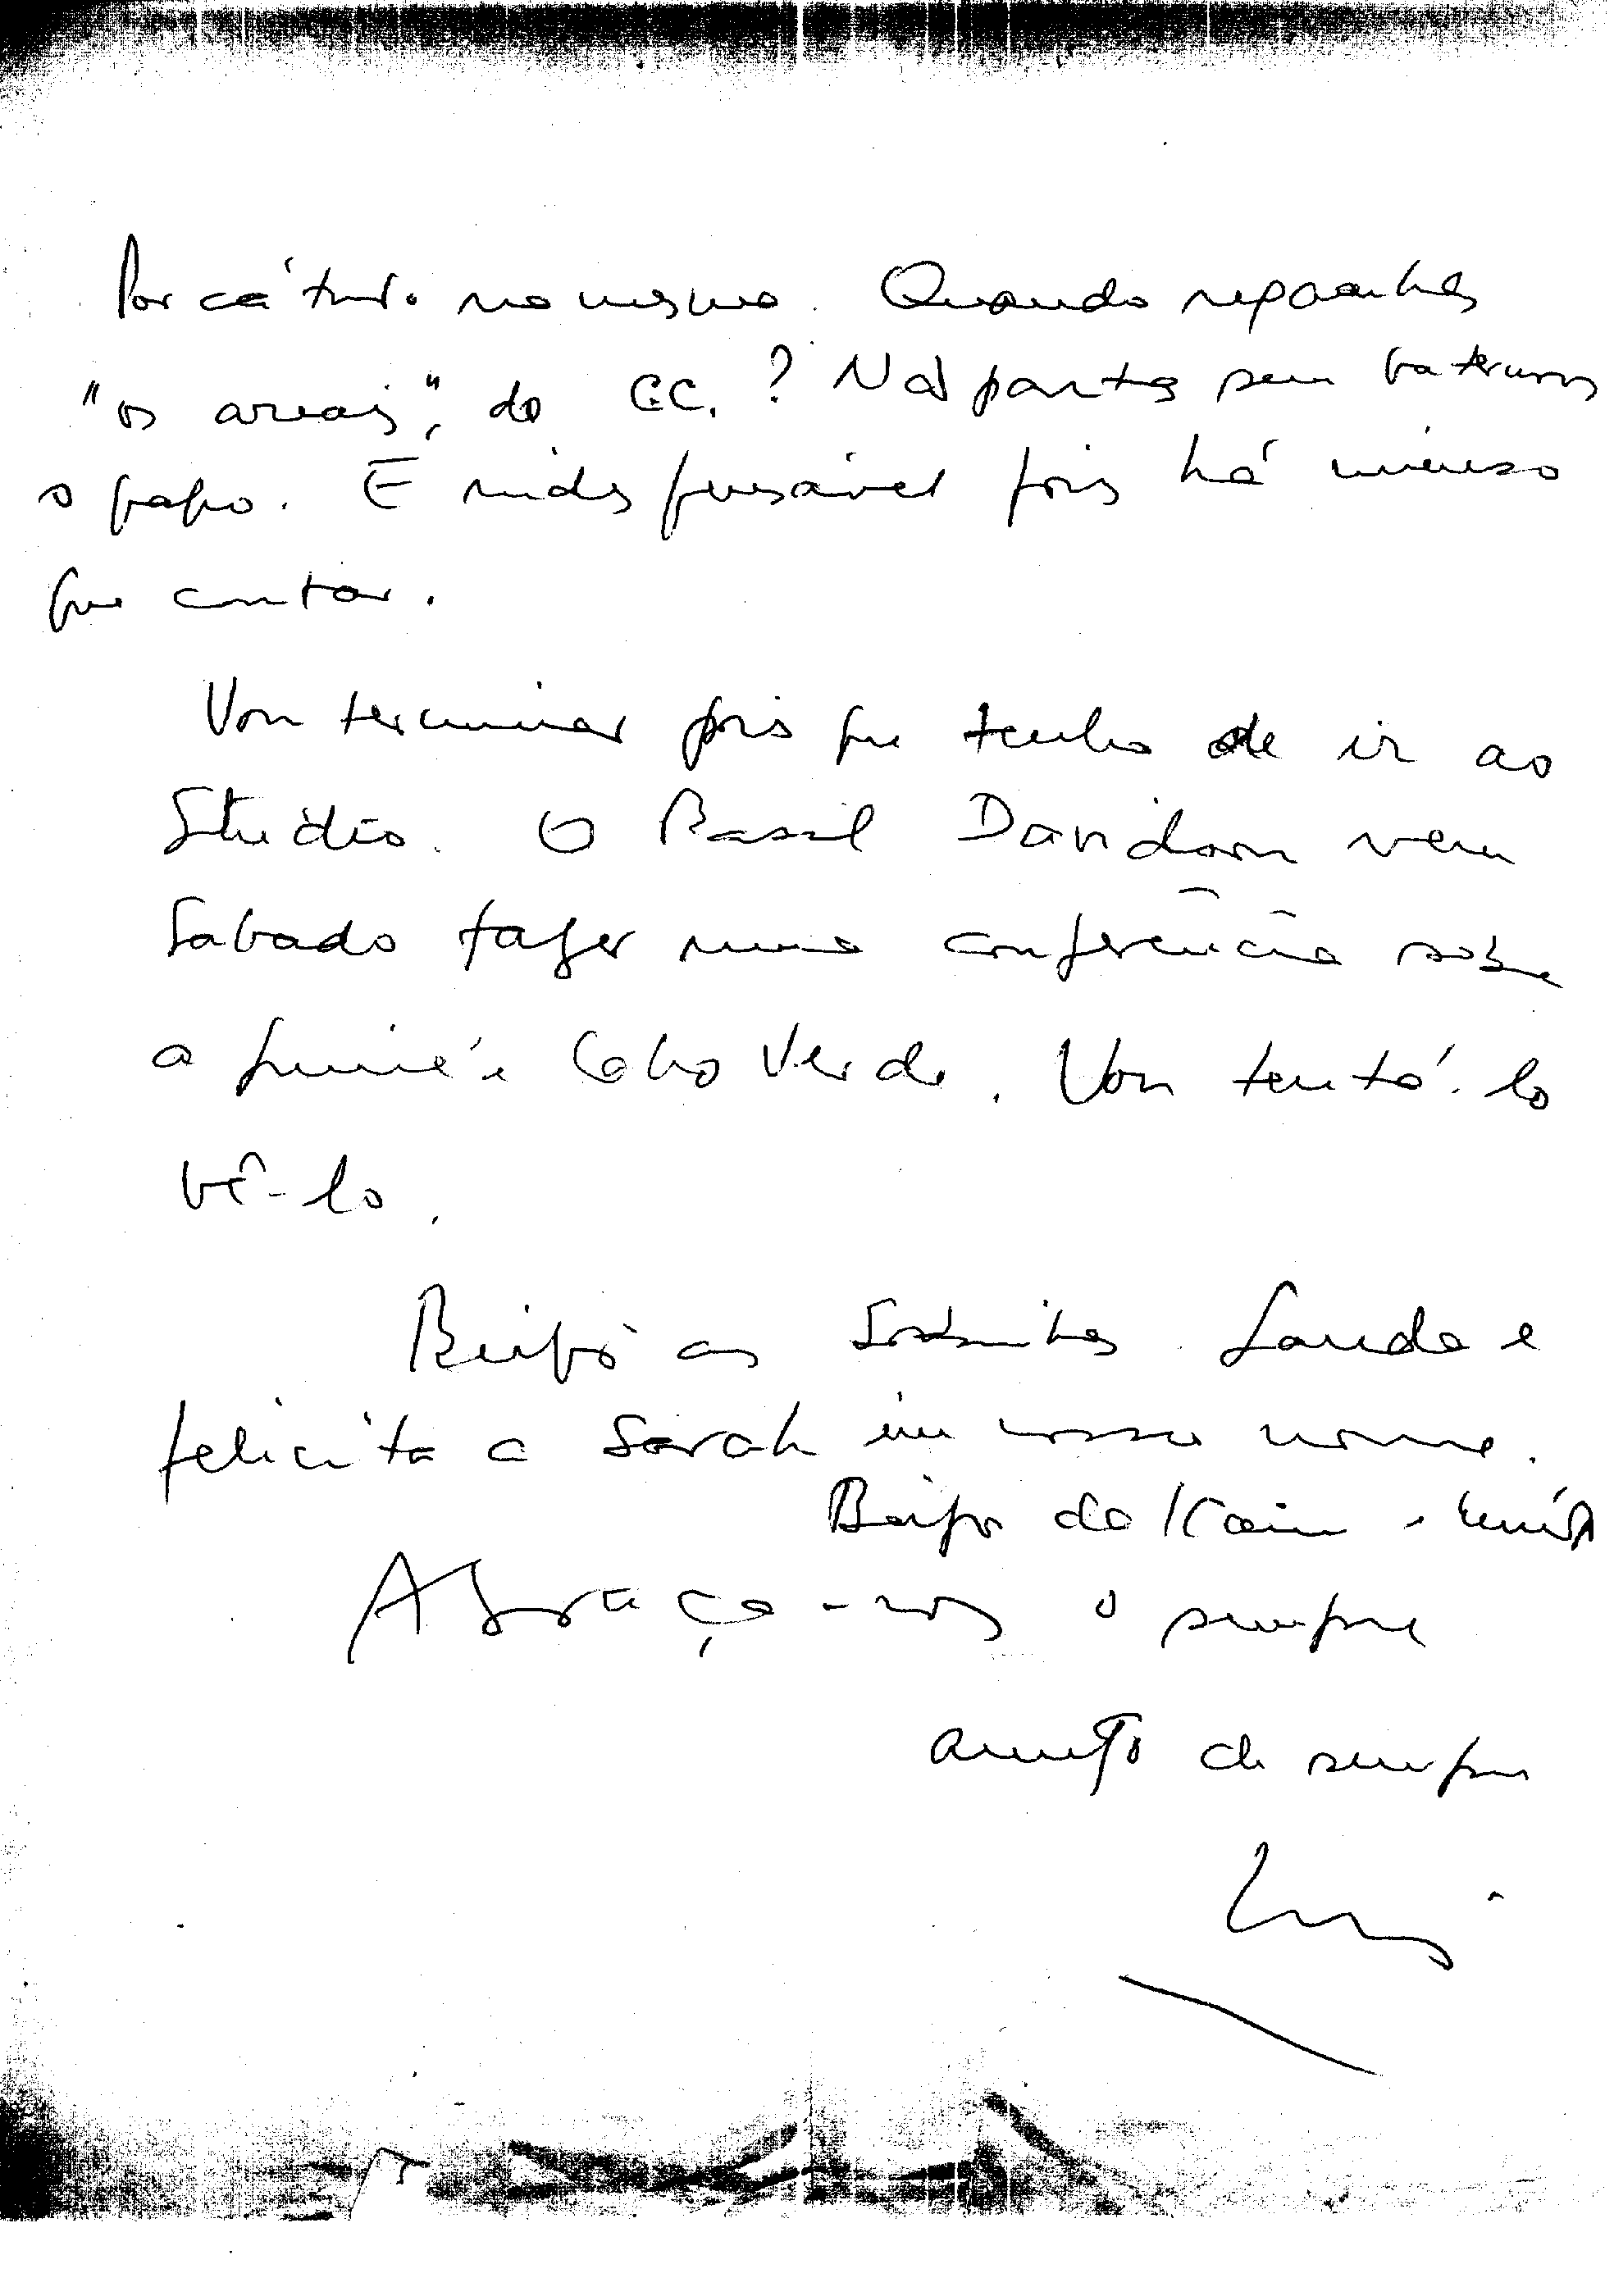 Por cá tudo no mesmo. Quando reganhas
"os areais", do CC.? Não partas sem batermos
o papo. É indispensável pois há imenso
que contar.
Vou terminar pois que tenho de ir ao
Studio. O Basil Davidson vem
Sabado fazer uma conferência sobre
a Guiné e Cabo Verde. Vou tentá-lo
vê-lo.
Beija as Sobrinhas. Sauda e
felicita a Sarah em nosso nome.
Beijos da
Abraça-vos o sempre
amigo de sempre